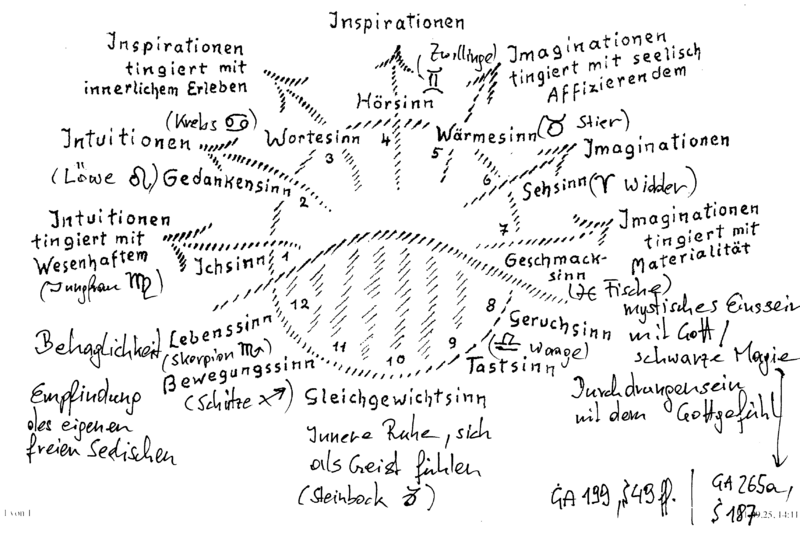 Inspirationen
(Zwillinge)
♊
Inspirationen
tingiert mit
innerlichem Erleben
Imaginationen
tingiert mit seelisch
Affizierendem
Hörsinn
(Krebs ♋)
Wortesinn
3
4
Wärmesinn (♉ Stier)
5
Intuitionen
Imaginationen
(Löwe ♌) Gedankensinn
2
6
Sehsinn (♈ Widder)
Intuitionen
tingiert mit
Wesenhaftem
(Jungfrau ♍)
Ichsinn
1
7
Imaginationen
tingiert mit
Materialität
Geschmack-
sinn
(♓ Fische)
12
11
10
9
8
Geruchsinn
(♎ Waage)
Tastsinn
mystisches Einssein
mit Gott /
schwarze Magie
Durchdrungensein
mit dem Gottgefühl
Behaglichkeit
Lebenssinn
(Skorpion ♏)
Bewegungssinn
(Schütze ♐)
Empfindung
des eigenen
freien Seelischen
Gleichgewichtsinn
Innere Ruhe, sich
als Geist fühlen
(Steinbock ♑)
GA 199, S 49 ff.
GA 265a,
S 187
1 von 1
.25, 14:11